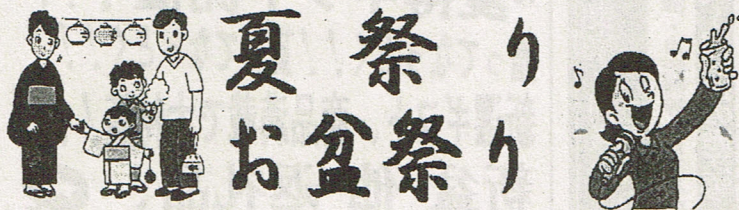 夏祭り
お盆祭り